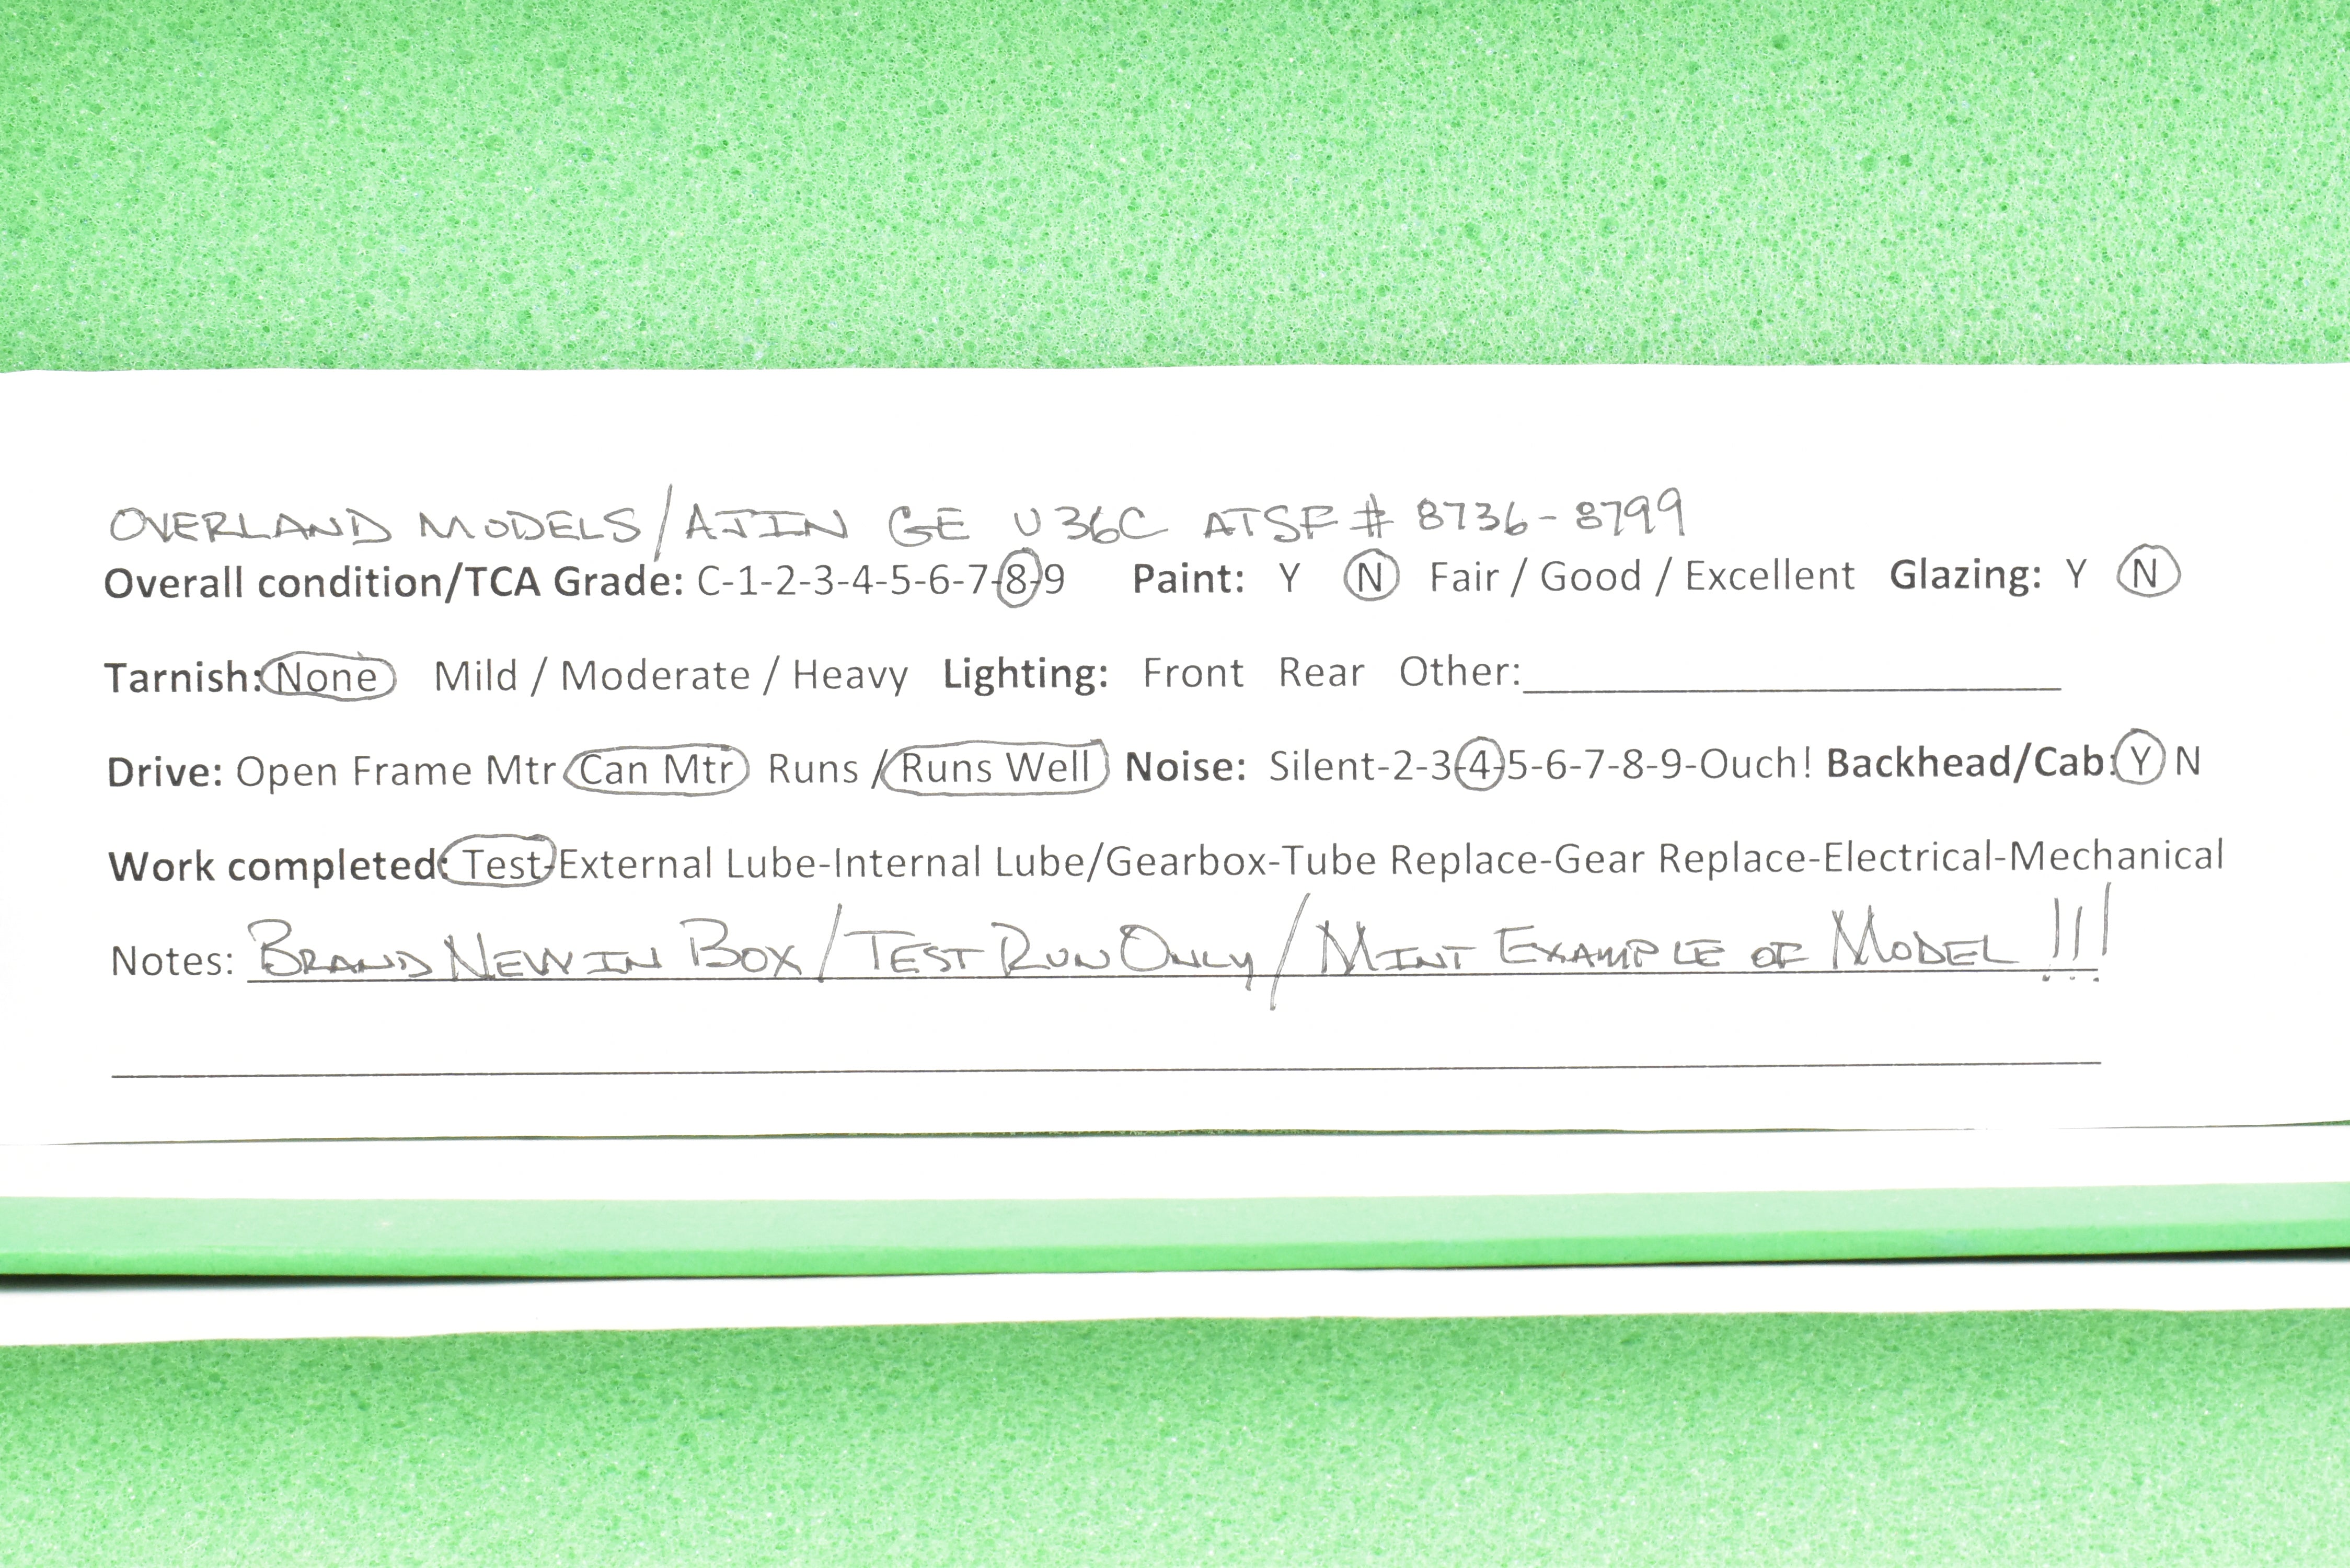 OVERLAND MODELS/AJIN GE U36C ATSF # 8736-8799
Overall condition/TCA Grade: C-1-2-3-4-5-6-7-8-9 Paint: Y N Fair / Good / Excellent Glazing: Y N
Tarnish: None Mild / Moderate / Heavy Lighting: Front Rear Other:
Drive: Open Frame Mtr Can Mtr Runs / Runs Well Noise: Silent-2-3-4-5-6-7-8-9-Ouch! Backhead/Cab: Y N
Work completed: Test-External Lube-Internal Lube/Gearbox-Tube Replace-Gear Replace-Electrical-Mechanical
Notes: BRAND NEW IN BOX/TEST RUN ONLY/MINT EXAMPLE OF MODEL!!!